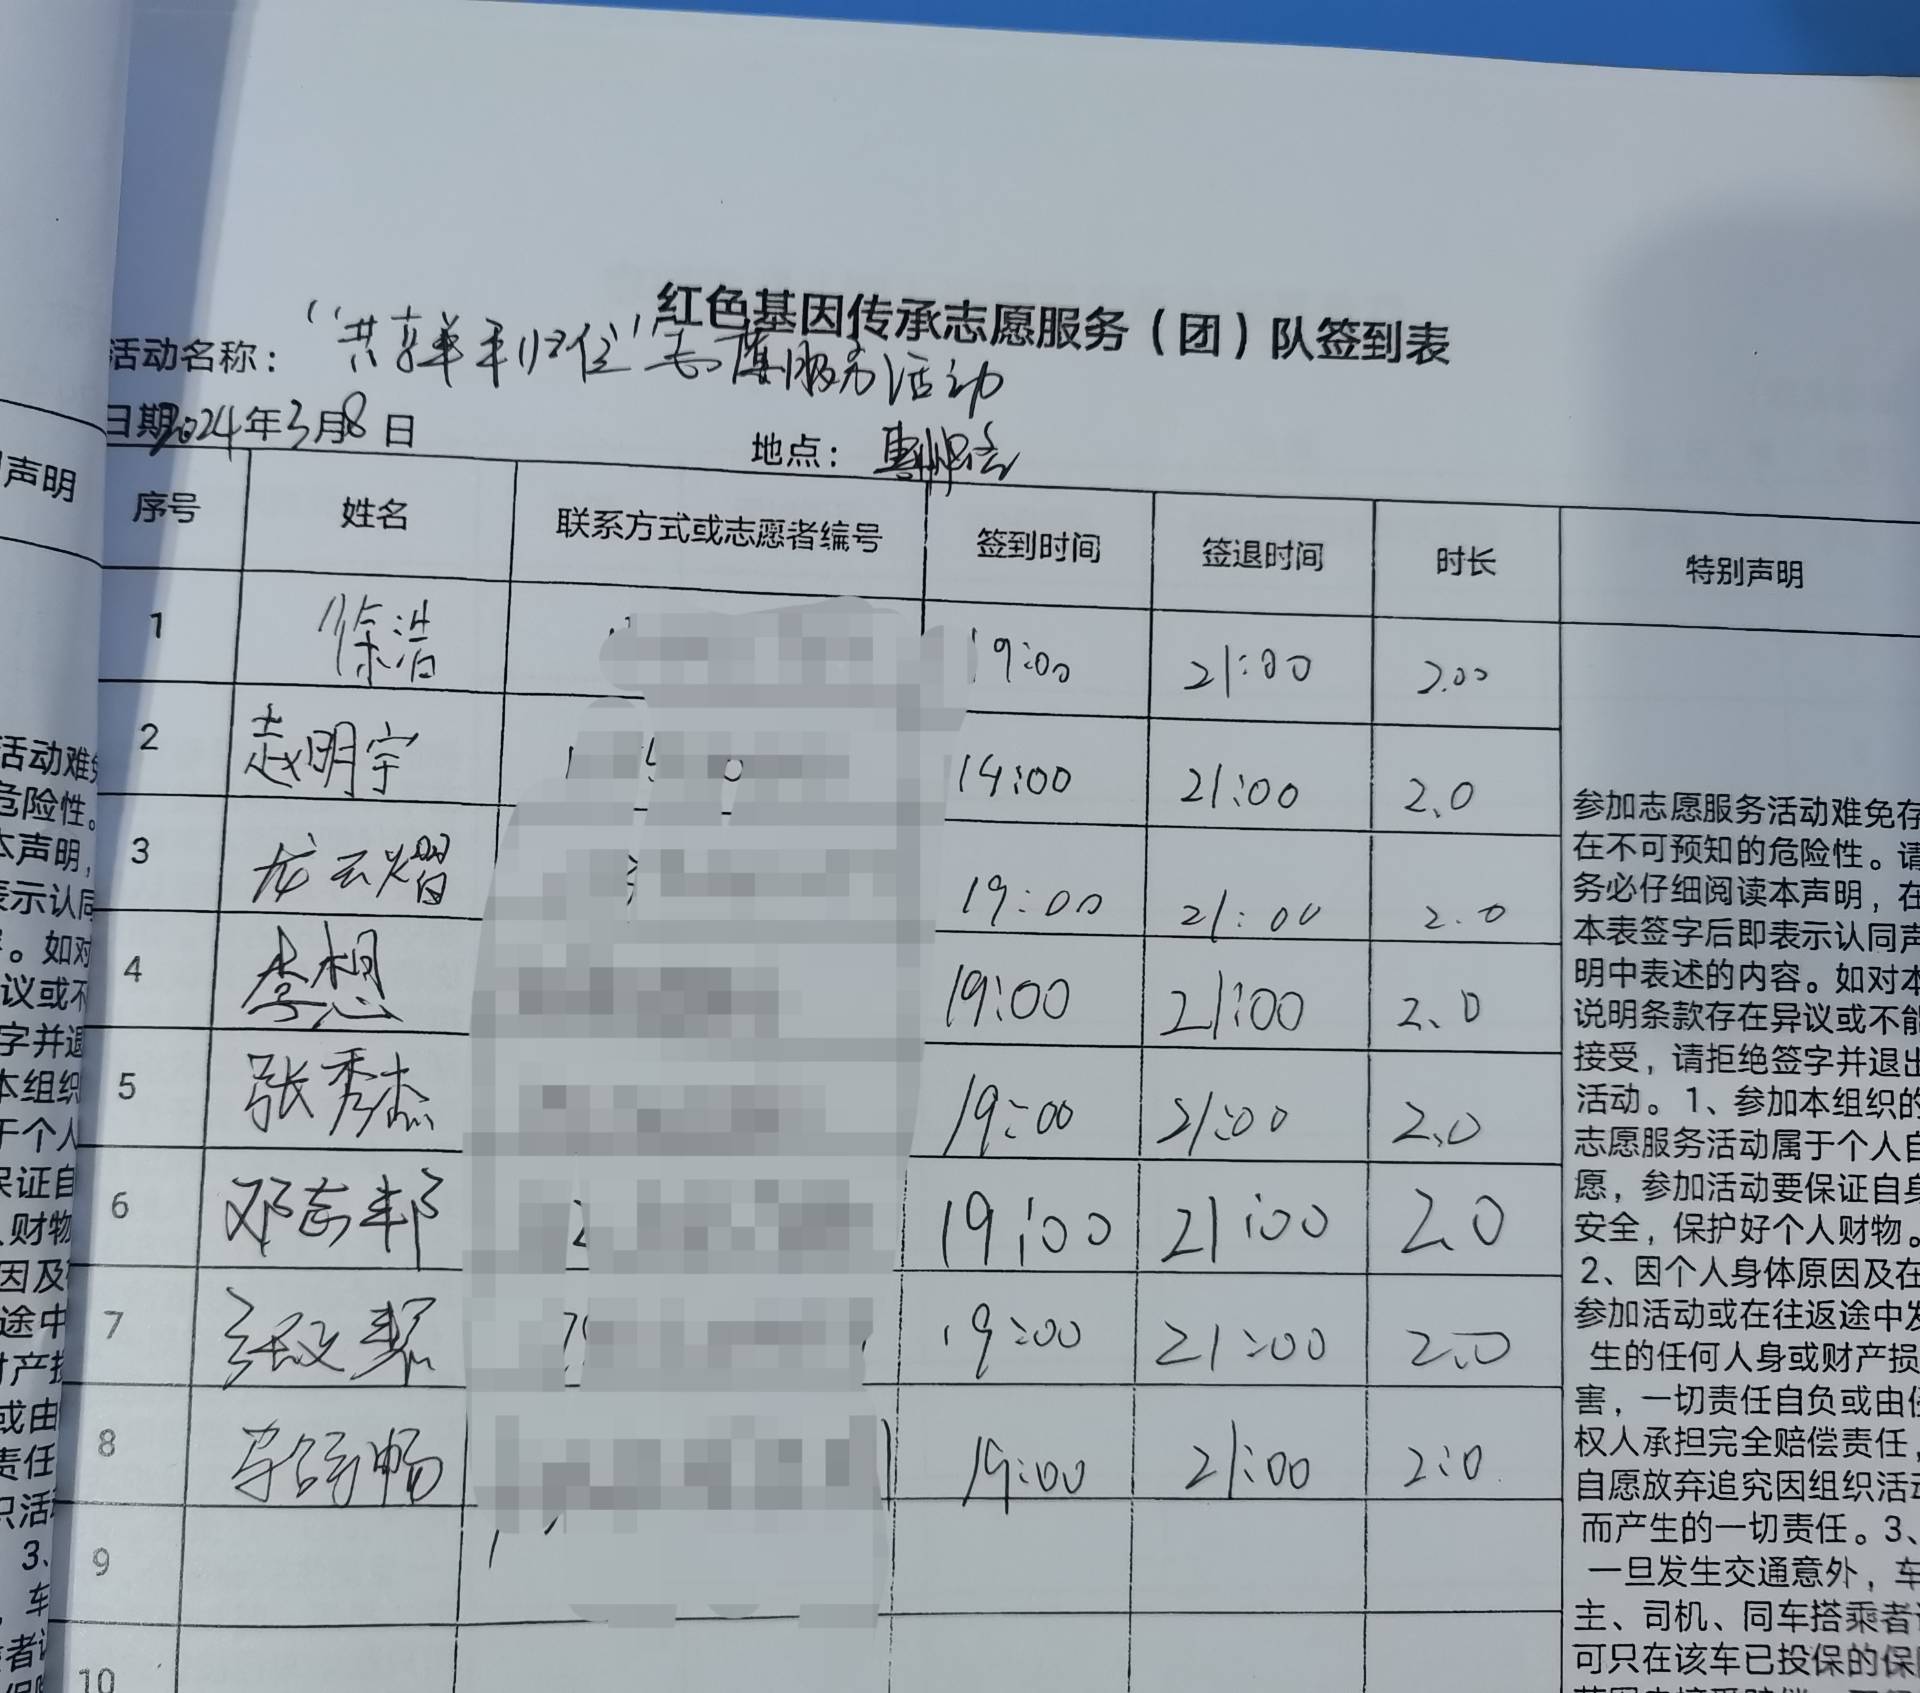 红色基因传承志愿服务（团）队签到表
活动名称：“共享单车归位”志愿服务活动
日期2024年3月8日
地点：
序号 姓名 联系方式或志愿者编号 签到时间 签退时间 时长 特别声明
1 徐浩 19:00 21:00 2.00
2 赵明宇 19:00 21:00 2.0
3 龙云熠 19:00 21:00 2.0
4 李想 19:00 21:00 2.0
5 张秀杰 19:00 21:00 2.0
6 邓志邦 19:00 21:00 2.0
7 19:00 21:00 2.0
8 19:00 21:00 2.0
9
10
参加志愿服务活动难免存
在不可预知的危险性。请
务必仔细阅读本声明，在
本表签字后即表示认同声
明中表述的内容。如对本
说明条款存在异议或不能
接受，请拒绝签字并退出
活动。1、参加本组织的
志愿服务活动属于个人自
愿，参加活动要保证自身
安全，保护好个人财物。
2、因个人身体原因及在
参加活动或在往返途中发
生的任何人身或财产损
害，一切责任自负或由侵
权人承担完全赔偿责任，
自愿放弃追究因组织活动
而产生的一切责任。3、
一旦发生交通意外，车
主、司机、同车搭乘者
可只在该车已投保的保
声明
活动难免
危险性。
本声明，
表示认同
。如对
议或不
字并退
本组织
于个人
保证自
人财物
因及
途中
财产损
或由
责任
织活
3、
，车